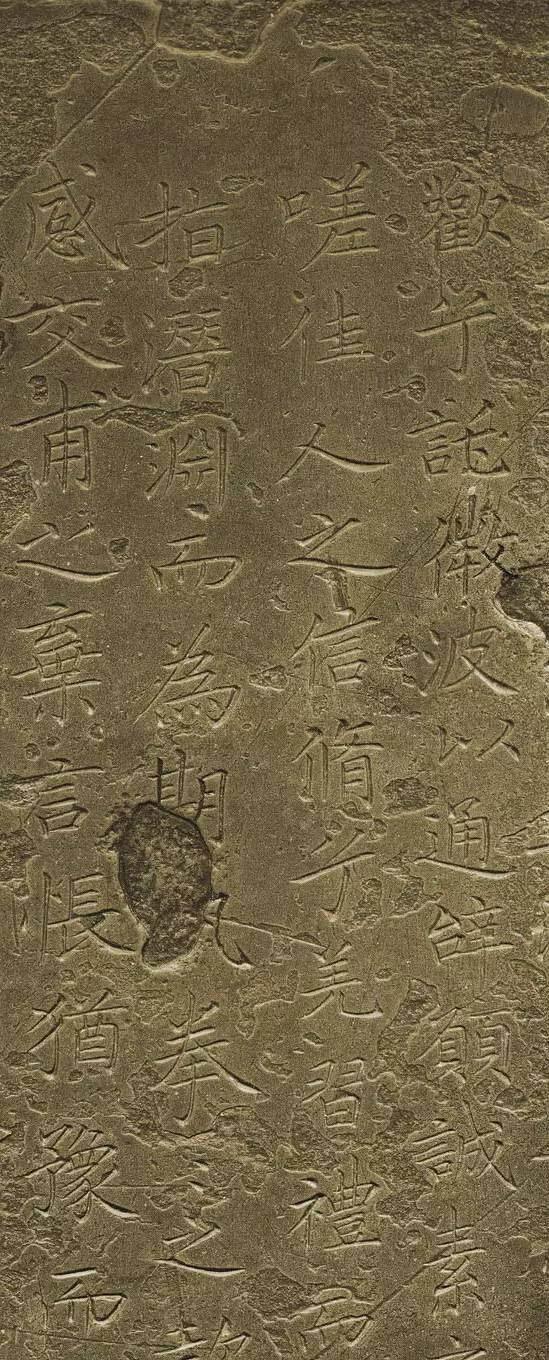 歡兮託微波以通辝願誠素
嗟佳人之信脩兮羌習禮而
指潛淵而為期拳之
感交甫之棄言悵猶豫而